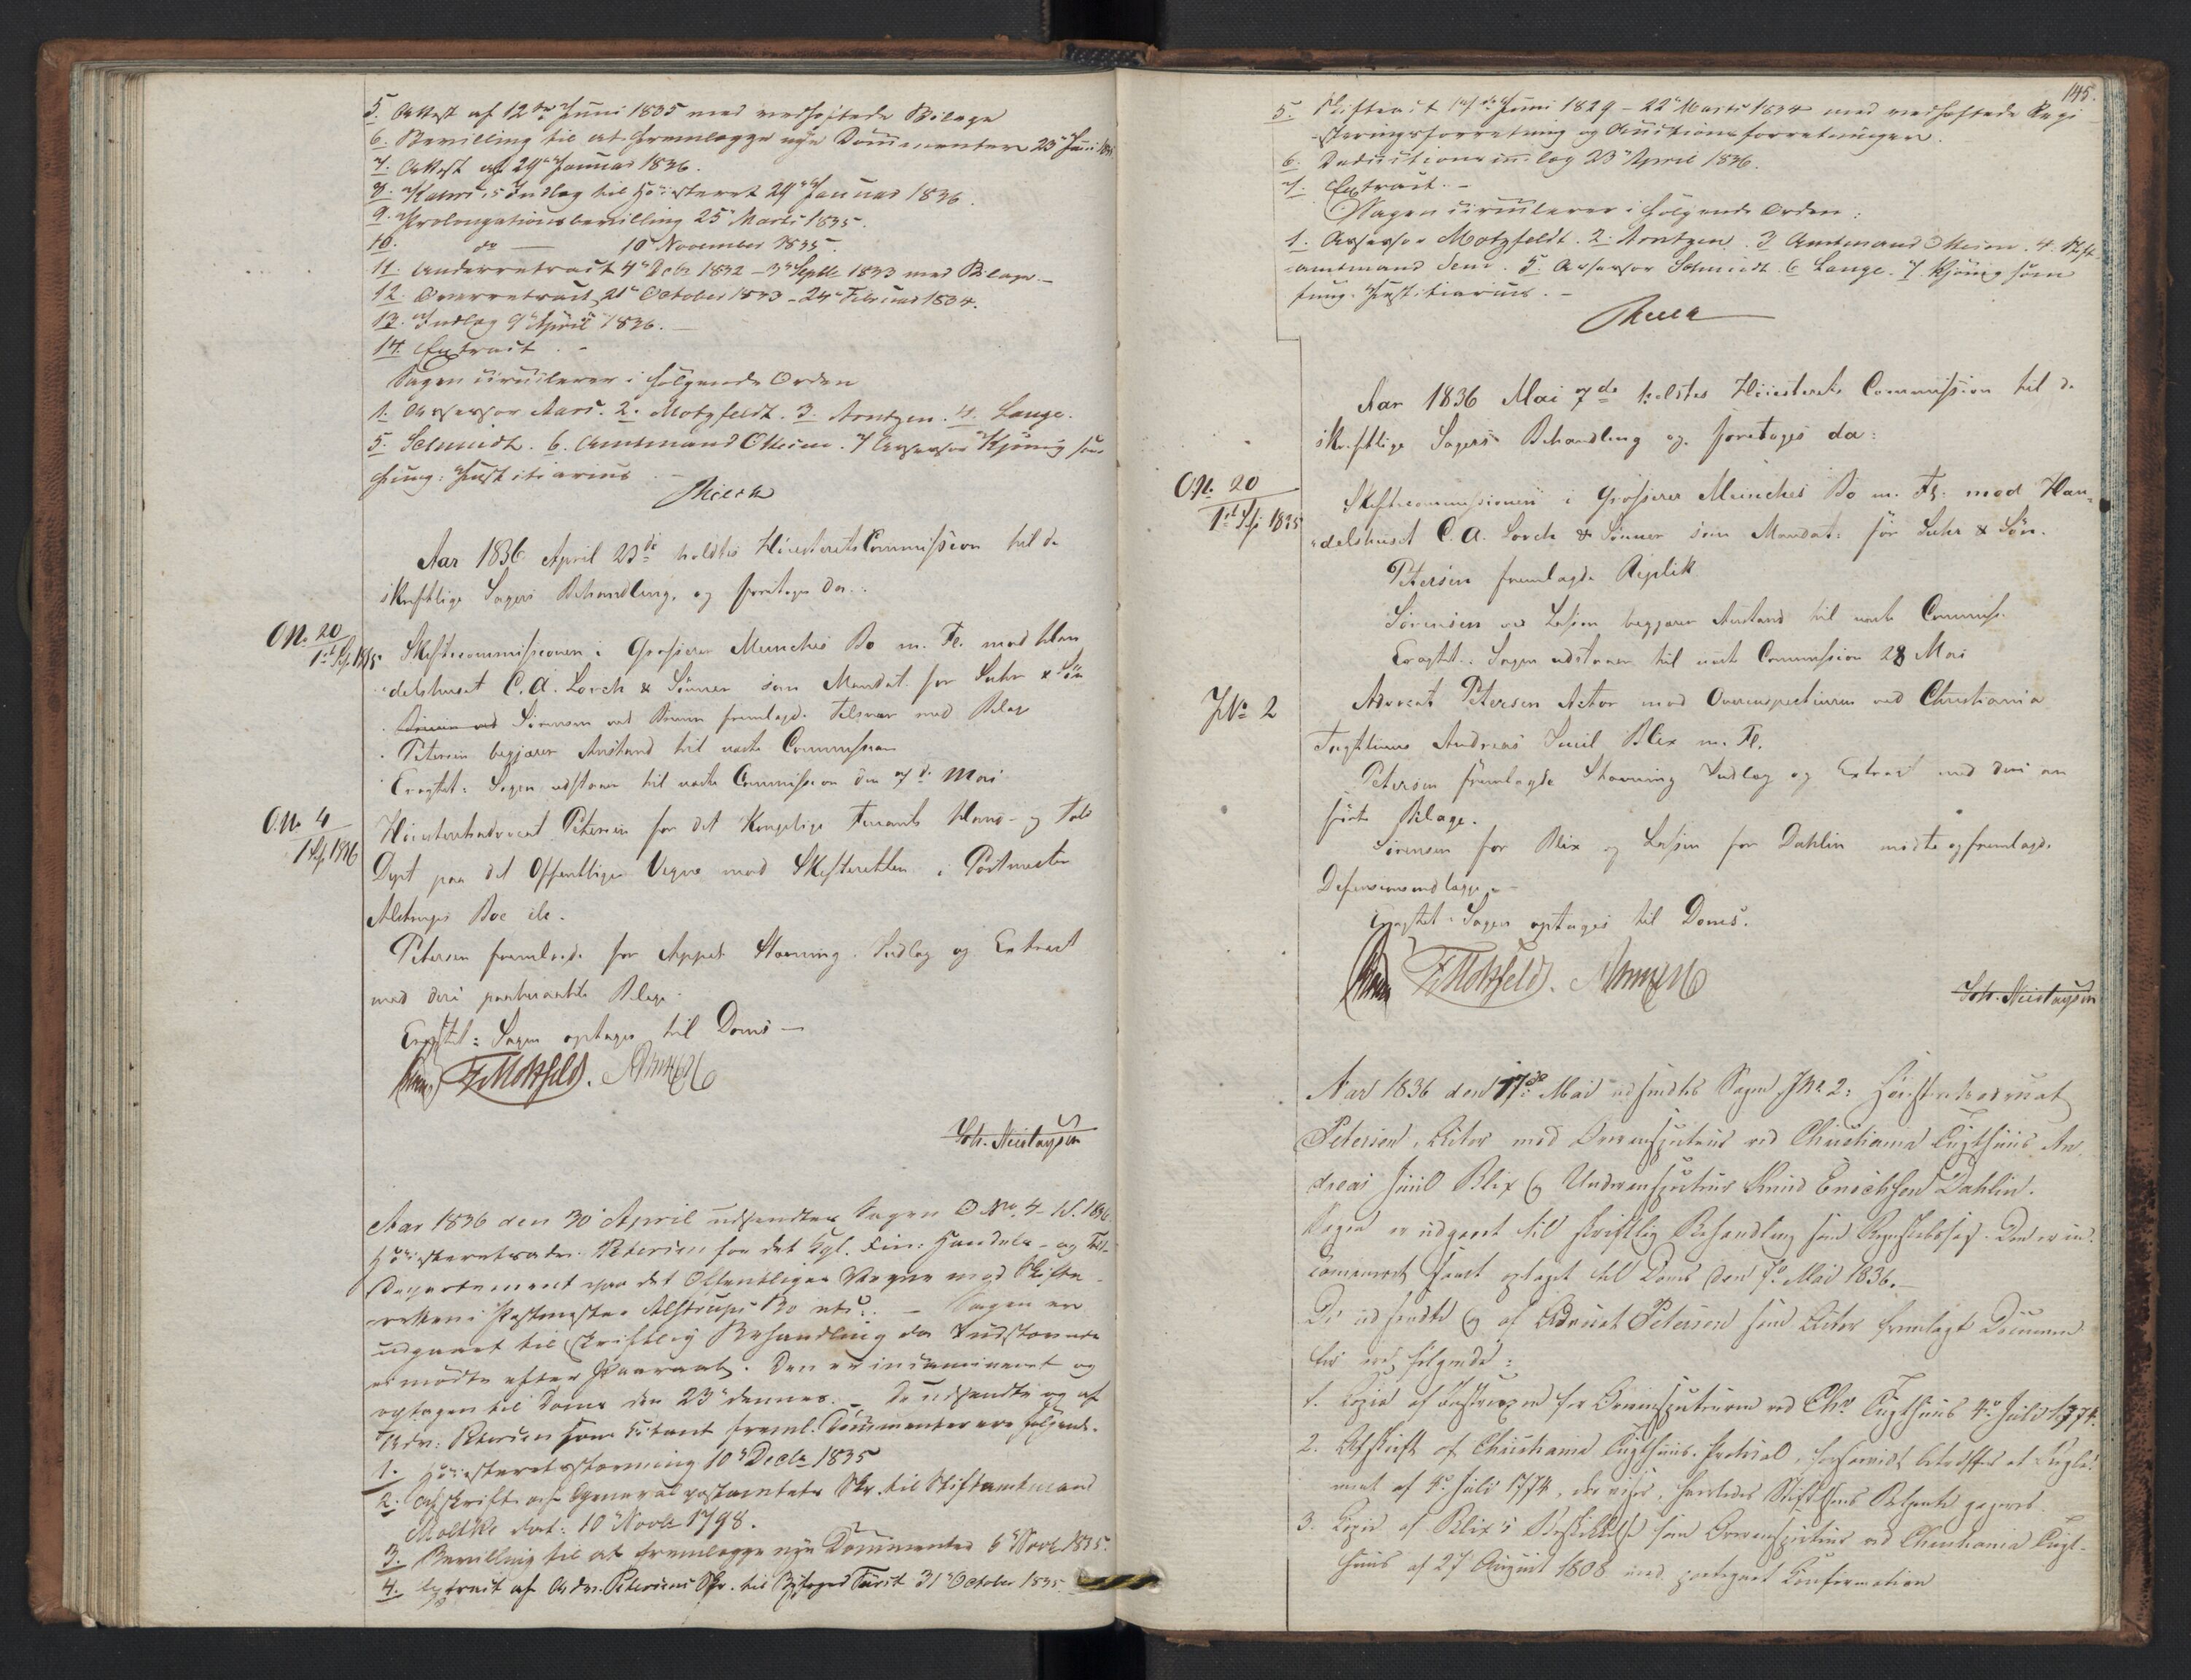 5. Attest af 12te Juni 1835 med vedhæftede Bilage
6. Bevilling til at fremlægge nye Documenter 23 Juni
7. Attest af 29 Januar 1836.
8. Indlæg til Höiesteret 29 Januar 1836.
9. Prolongationsbevilling 25 Marts 1835.
10. do — 10 November 1835.
11. Underretsact 4 Octbr 1832 – 3 Septbr 1833 med Bilage. –
12. Overretsact 21 October 1833 – 24 Februar 1834.
13. Indlæg 9 April 1836. –
14. Extract. –
Sagen circulerer i følgende Orden
1. Assessor Aars. 2. Motzfeldt. 3. Arntzen. 4. Lange.
5. Schmidt. 6. Amtmand Theim. 7 Assessor Kjönig som
fung: Justitiarius –
Aar 1836 April 23de holdtes Höiesterets Commission til de
skriftlige Sagers Behandling, og foretoges da:
O.No. 20
1ste 1835
Skiftecommissionen i Grosserer Munches Bo m. Fl. mod Han
delshuset C. A. Lorch & Sönner som Mandat. for Suhr & Sön
Sörensen ved fremlagde Tilsvar med Bilag
Petersen begjærer Anstand til næste Commission
Eragtet: Sagen udstaaer til næste Commission den 7de Mai
O.No 4
1836
Höiesteretsadvocat Petersen for det Kongelige Finants Hand- og Told
Dept paa det Offentliges Vegne mod Skifteretten i Postmester
Alstrups Boe etc.
Petersen fremlagde for Appet Stævning, Indlæg og Extract
med deri paaberaabte Bilage.
Eragtet: Sagen optages til Doms –
FMotzfeldt. Arntzen
Aar 1836 den 30 April udsendtes Sagen O No. 4
Höiesteretsadv. Petersen for det Kgl. Fin: Handels- og Told-
Departement paa det Offentliges Vegne mod Skifte-
retten i Postmester Alstrups Bo etc. – Sagen er
udgaaet til skriftlig Behandling da Indstævnte
ei mödte efter Paaraab. Den er incamineret og
optagen til Doms den 23 dennes. – De udsendte og af
Adv: Petersen som Citant freml. Documenter ere følgende.
1. Höiesteretsstævning 10 Decbr 1835
2. Afskrift af Generalpostamtets Skr. til Stiftamtmand
Moltke dat: 10 Novbr 1798.
3. Bevilling til at fremlægge nye Documenter 6 Novbr 1835.
4. Extract af Adv. Petersens Skr. til 31 October 1835
145.
5. Skifteact Juni 1829 – 22 Marts 1834 med vedhæftede Regi
streringsforretning og Auctionsforretningen.
6. Deductionsindlæg 23 April 1836.
7. Extract. –
Sagen circulerer i følgende Orden:
1. Assessor Motzfeldt. 2. Arntzen. 3 Amtmand Theim. 4. Stift
amtmand . 5. Assessor Schmidt. 6 Lange. 7. Kjönig som
fung. Justitiarius. –
Aar 1836 Mai 7de holdtes Höiesterets Commission til de
skriftlige Sagers Behandling og foretoges da:
O.No. 20
1ste 1835
Skiftecommissionen i Grosserer Munches Bo m. Fl. mod Han-
delshuset C. A. Lorch & Sönner som Mandat: for Suhr & Sön.
Petersen fremlagde Replik
Sörensen ved begjærer Anstand til næste Commiss.
Eragtet: Sagen udstaaer til næste Commission 28 Mai
JNo 2
Advocat Petersen Actor mod Overinspecteuren ved Christiania
Tugthuus Andreas Juul Blix m. Fl.
Petersen fremlagde Stævning Indlæg og Extract med deri an
førte Bilage.
Sörensen for Blix og for Dahlin mödte og fremlagde
Defensionsindlægge –
Eragtet: Sagen optages til Doms.
FMotzfeldt. Arntzen
Aar 1836 den 17de Mai udsendtes Sagen J No 2: Höiesteretsadvocat
Petersen, Actor mod Overinspecteur ved Christiania Tugthuus An
dreas Juul Blix og Underinspecteur Knud Erichsen Dahlin.
Sagen er udgaaet til skriftlig Behandling som . Den er in-
camineret samt optaget til Doms den 7de Mai 1836. –
De udsendte og af Advocat Petersen som Actor fremlagte Documen
ter ere følgende:
1. Copie af Instruxen for Overinspecteuren ved Chra Tugthuus 4 Juli 1774.
2. Afskrift af Christiania Tugthuus Protocol, forsaavidt betræffer et Regle-
ment af 4 Juli 1774, der viser, hvorledes
3. Copie af Blix's Bestalling som Overinspecteur ved Christiania Tugt-
huus af 27 August 1808 med paategnet Confirmation